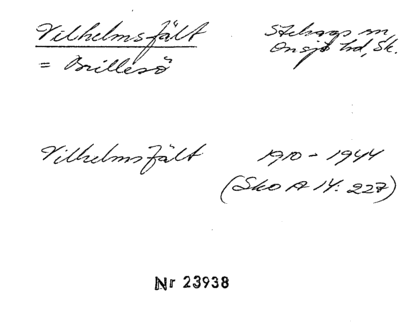 Vilhelmsfält Stehags sn,
= Brillesö Onsjö hd, Sk.
Vilhelmsfält 1910 - 1944
(SkO A 14: 227)
Nr 23938